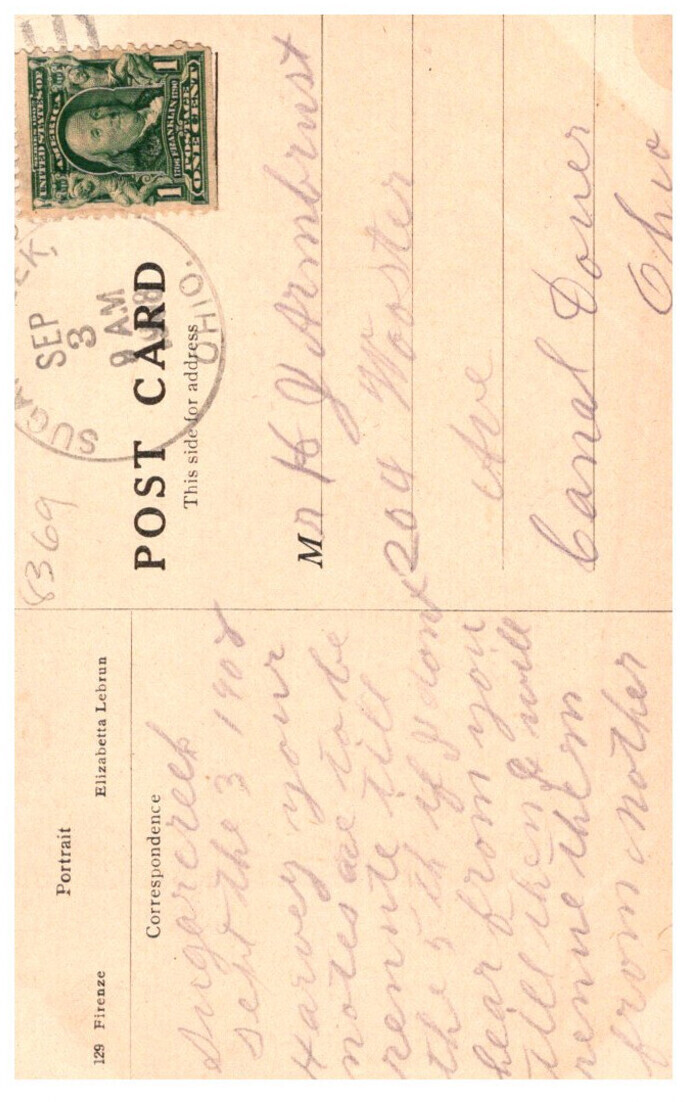 129 Firenze
Portrait
Elizabetta Lebrun
Correspondence
Sugarcreek
Sept the 3 1908
Harvey your
notes are to be
renute till
the 5th if I dont
hear from you
till then I will
renue them
from Mother
8369
POST CARD
This side for address
SEP
3
AM
OHIO.
UNITED STATES OF
AMERICA
1706 FRANKLIN 1790
POSTAGE
1 ONE CENT 1
Mr H J Armbrust
204 Wooster
Ave
Canal Dover
Ohio